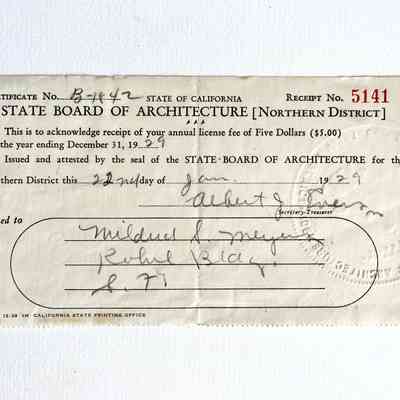 TIFICATE No. B-1942 STATE OF CALIFORNIA RECEIPT No. 5141
STATE BOARD OF ARCHITECTURE [NORTHERN DISTRICT]
This is to acknowledge receipt of your annual license fee of Five Dollars ($5.00)
the year ending December 31, 1929
Issued and attested by the seal of the STATE BOARD OF ARCHITECTURE for th
thern District this 22nd day of Jan. 1929
Albert J. Evers
Secretary-Treasurer
ed to
Mildred S. Meyers
Rohil Bldg.
S. F.
12-28 1M CALIFORNIA STATE PRINTING OFFICE